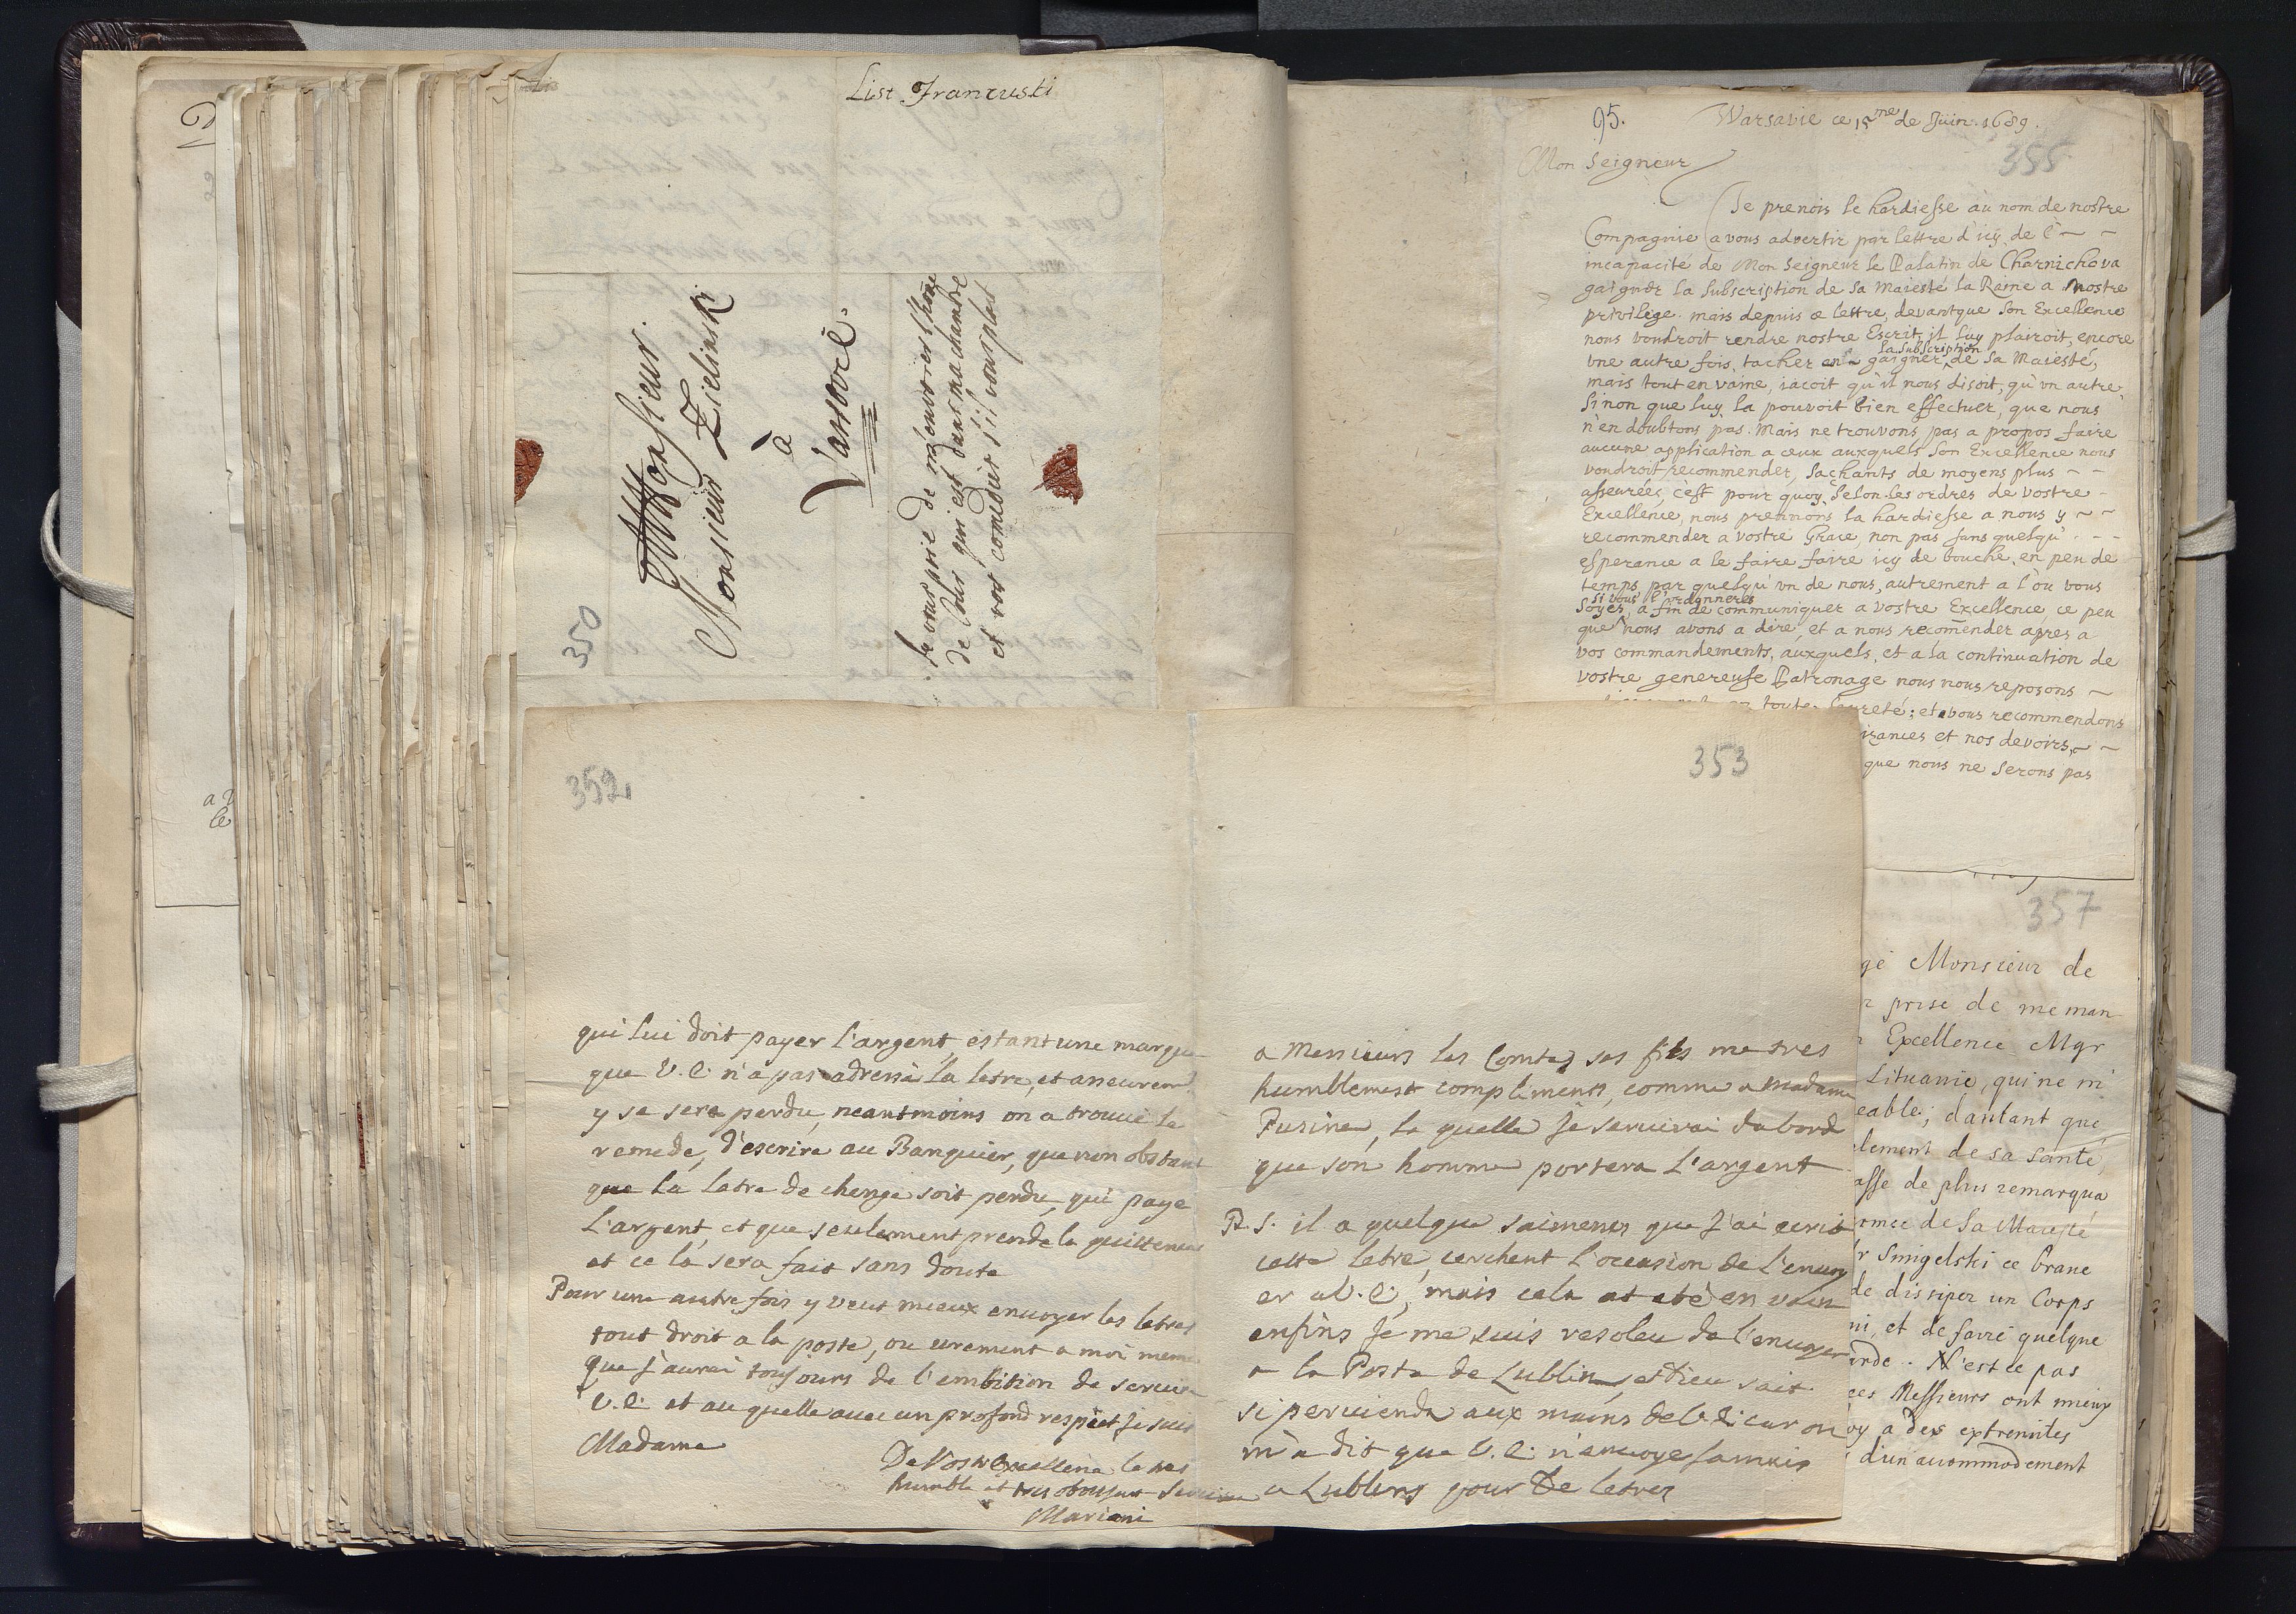 List Francuski
Monsieur.
Monsieur Zielinski
à
Varsovie.
Je vous prie de m'envoier
de Lolis qui est dans ma chambre
et vos comedies s'il vous plaist
350
95.
Warsavie ce 15me de Juin. 1689.
355
Mon Seigneur
Je prenois le hardiesse au nom de nostre
Compagnie a vous advertir par lettre d'icy de l'
incapacité de Mon Seigneur le Palatin de Charnichova
gaigner la Subscription de Sa Maiesté la Raine a nostre
privilege. mais depuis ce lettre, devantque Son Excellence
nous voudroit rendre nostre Escrit, il luy plairoit, encore
la Subscription
une autre fois, tacher gaigner de Sa Maiesté,
mais tout en vaine, iacoit qu'il nous disoit, qu'un autre,
Sinon que luy, la pouvoit bien effectuer, que nous
n'en doubtons pas. Mais ne trouvons pas a propos faire
aucune application a ceux auxquels Son Excellence nous
voudroit recommender, sachants de moyens plus
asseurées, c'est pour quoy, Selon les ordres de vostre
Excellence, nous prennons la hardiesse a nous y
recommender a vostre Grace, non pas sans quelqu'
esperance a le faire faire icy de bouche, en peu de
temps, par quelqu'un de nous, autrement a l'ou vous
si vous l'ordonneres
soyes, a fin de communiquer a vostre Excellence ce peu
que nous avons a dire, et a nous recomender apres a
vos commandements, auxquels, et a la continuation de
vostre genereuse Patronage nous nous reposons
toute seureté: et vous recommendons
et nos devoirs,
que nous ne serons pas
352
qui lui doit payer l'argent, estant une marque
que V.E. n'a pas adressé la letre, et
y se sera perdu, neantmoins on a trouvé le
remede, d'escrire au Banquier, que non obstant
que la letre de change soit perdu, qui paye
L'argent, et que seulement prende la quittence
et ce la sera fait sans doute
Pour une autre fois y veut mieux envoyer les letres
tout droit a la poste, ou urement a moi meme
que j'aurai toujours de l'embition de servir
V.E. et au quelle avec un profond respect je suis
Madame
De Vostre Excellence le tres
humble et tres obeissant
Mariani
353
a Messieurs les Comtes ses fils me tres
humblement compliments, comme a Madame
Pusine, la quelle je servirai dabord
que son homme portera L'argent
P. S. il a quelque saimenes que J'ai ecrit
cette letre, cerchent l'occasion de l'envoy
er a V.E, mais cela at eté en vain
enfins Je me suis resoleu de l'envoyer
a la Poste de Lublin, et Dieu sait
si perviendra aux mains de V.E. car on
m'a dit que V.E. n'envoye jamais
a Lublins pour De letres
357
gé Monsieur de
prise de me man
Excellence Mgr
Lituanie, qui ne m'
eable; dautant que
lement de sa santé,
asse de plus remarqua
rmee de Sa Majesté
r Smigelski ce brave
de dissiper un Corps
ni, et de faire quelque
arde. N'est ce pas
ces Messieurs ont mieux
oy a des extremites
d'un accommodement